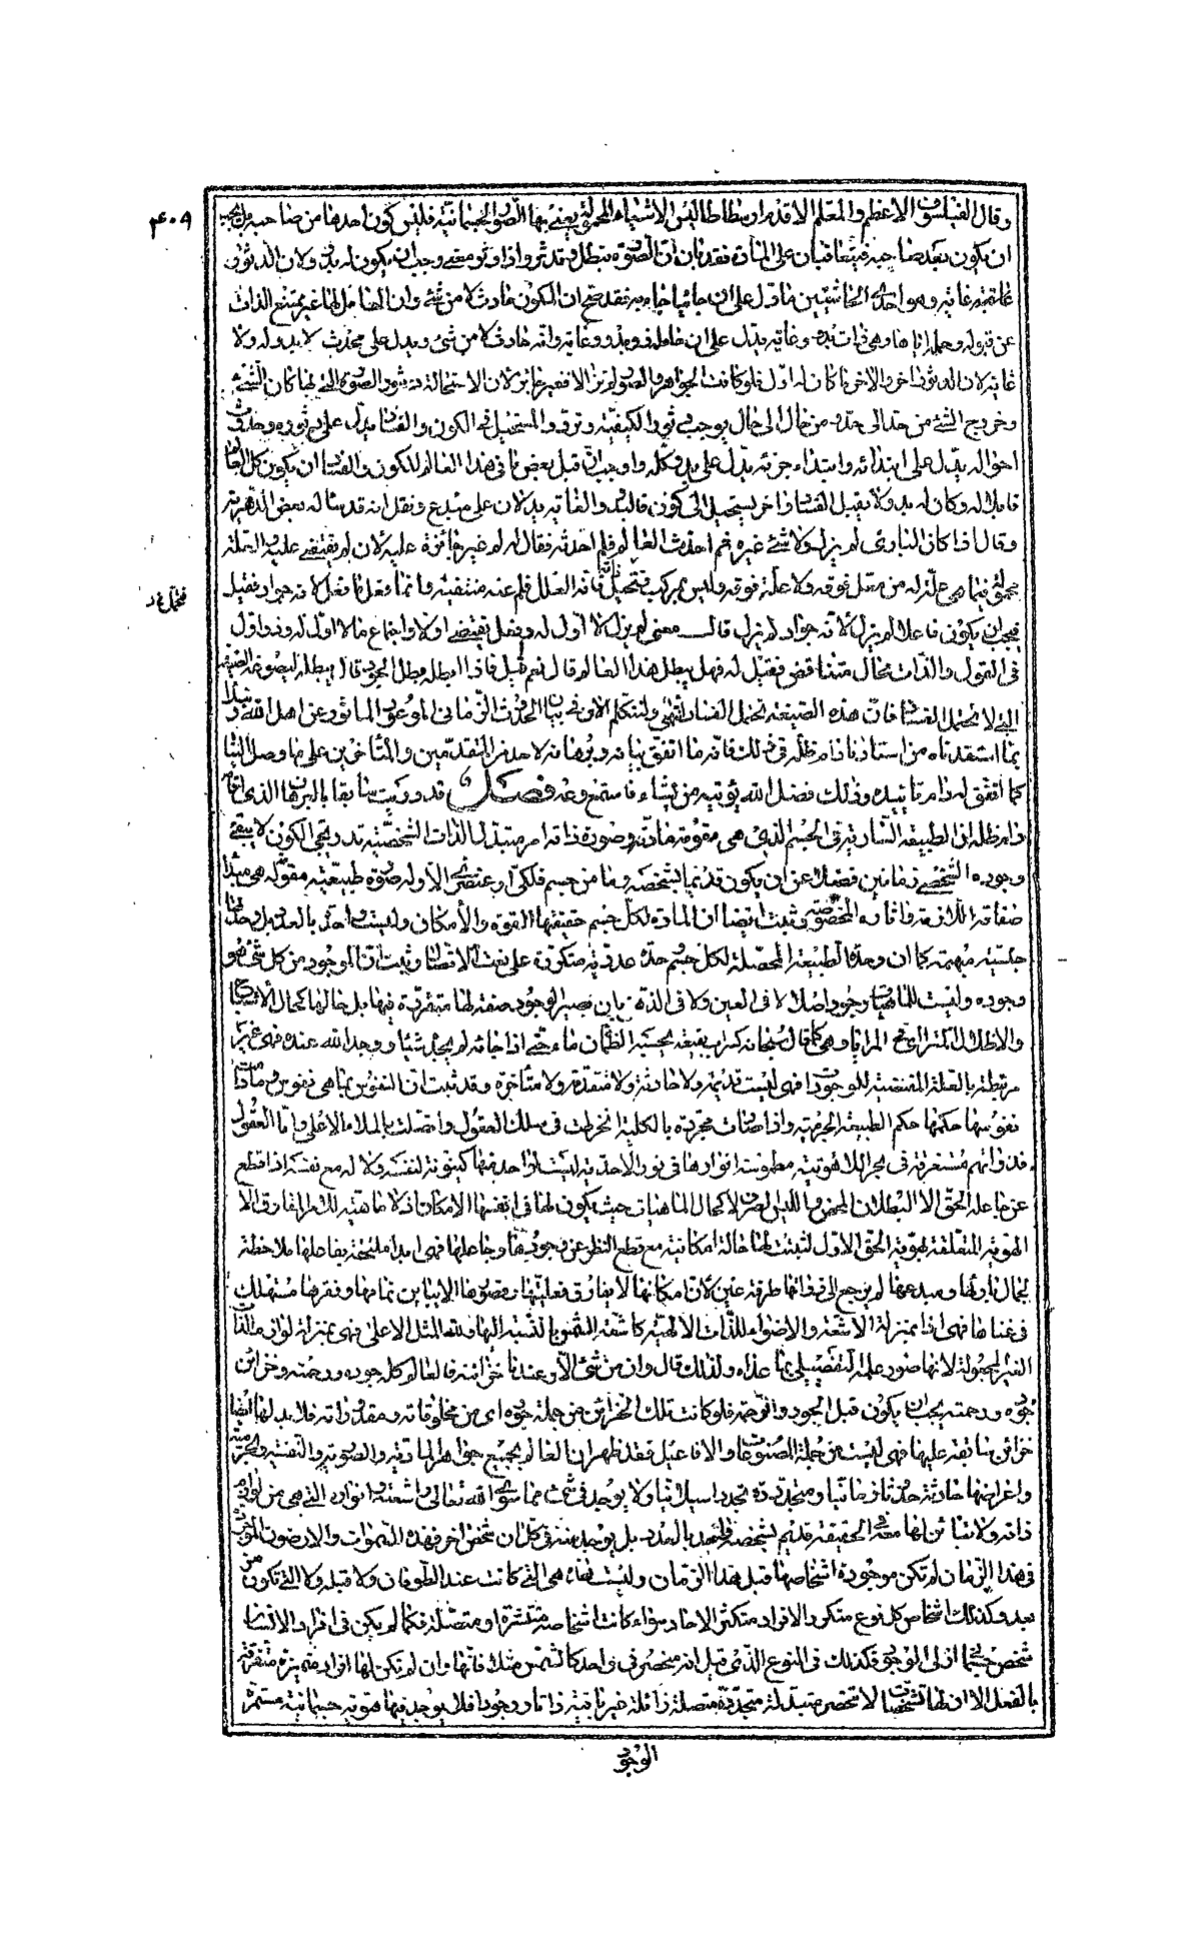 ٤٠٩
وقال الفيلسوف الاعظم والمعلم الاقدم ارسطاطاليس الاشياء المحمولة يعنى بها الصور الجسمانية فليس كون احدهما من صاحبه بل يجب
ان يكون بعد صاحبه فيتعاقبان على المادة فقد بان ان الصورة تبطل وتدثر واذا دثر معنى وجب ان يكون له بدو لان الدثور
غاية وهو احد الحاشيتين ما دل على ان جائيا جاء به فقد صح ان المكون حادث لا من شئ وان الحامل لها غير ممتنع الذات
عن قبوله وحمله اياها وهى ذات بدو وغاية يدل على ان حامله ذو بدو وغاية وانه حادث لا من شئ ويدل على محدث لا بدو له ولا
غاية لان الدثور اخر والاخر ما كان له اول فلو كانت الجواهر والصور لم يزالا فغير جائز لان الاستحالة دثور الصورة التى بها كان الشئ
وخروج الشئ من حد الى حد ومن حال الى حال يوجب دثور الكيفية وتردد المستحيل فى الكون والفساد يدل على دثوره وحدوث
احواله يدل على ابتدائه وابتداء جزئه يدل على بدو كله وواجب ان قبل بعض ما فى هذا العالم للكون والفساد ان يكون كل العالم
قابلا له وكان له بدو ولا يقبل الفساد واخر يستحيل الى كون فالبدو والغاية يدلان على مبدع ونقل انه قد سأله بعض الدهرية
وقال اذا كان البارى لم يزل ولا شئ غيره ثم احدث العالم فلم احدثه فقال له لم غير جائزة عليه لان لم يقتضى علية والعلة
محمولة فيما هى علة له من معل فوقه ولا علة فوقه وليس بمركب فتحتمل ذاته العلل فلم عنه منتفية وانما فعل ما فعل لانه جواد فقيل
فيجب ان يكون فاعلا لم يزل لانه جواد لم يزل قال معنى لم يزل لا اول له وفعل يقتضى اولا واجتماع ما لا اول له وذو اول
فى القول والذات محال متناقض فقيل له فهل يبطل هذا العالم قال نعم قيل فاذا ابطله بطل الجود قال يبطله ليصوغه الصيغة
التى لا تحتمل الفساد فان هذه الصيغة تحتمل الفساد انتهى ولنتكلم الان فى بيان الحدوث الزمانى الموعود الماثور عن اهل الله
بما استفدناه من استادنا دام ظله فى ذلك فانه ما اتفق بيانه وبرهانه لاحد من المتقدمين والمتاخرين على ما وصل الينا
كما اتفق له دام تاييده وذلك فضل الله يؤتيه من يشاء فاستمع وعه فصل قد دريت سابقا بالبرهان الذى اقام
دام ظله ان الطبيعة السارية فى الجسم الذى هى مقومة مادته وصورة ذاته امر متبدل الذات الشخصية تدريجى الكون لا يبقى
وجوده الشخصى زمانين فضلا عن ان يكون قديما بشخصه وما من جسم فلكى او عنصرى الا وله صورة طبيعية مقومة هى مبدا
صفاته اللازمة واثاره المخصوصة وثبت ايضا ان المادة لكل جسم حقيقتها القوة والامكان وليست واحدة بالعدد بل وحدتها
جنسية مبهمة كما ان وحدة الطبيعة المحصلة لكل جسم وحدة عددية متكونة على نعت الاتصال وثبت ان الموجود من كل شئ هو
وجوده وليست للماهيات وجود اصلا لا فى العين ولا فى الذهن بان يصير الوجود صفة لها متقررة فيها بل حالها كحال الاشباح
والاظلال المتراءى فى المرايا وهى كما قال سبحانه كسراب بقيعة يحسبه الظمان ماء حتى اذا جاءه لم يجده شيئا ووجد الله عنده فهى غير
مرتبطة بالعلة المقتضية للوجود اذ فهى ليست قديمة ولا حادثة ولا متقدمة ولا متاخرة وقد ثبت ان النفوس بما هى نفوس ما دامت
نفوسيتها حكمها حكم الطبيعة الجرمية واذا صارت مجردة بالكلية انخرطت فى سلك العقول واتصلت بالملاء الاعلى واما العقول
فذواتهم مستغرقة فى بحر اللاهوتية مطموسة انوارها فى نور الاحدية ليست لواحد منها كينونة لنفسه ولا له مع نفسه اذا قطع
عن جاعله الحق الا البطلان المحض والليس الصرف لا كحال الماهيات حيث يكون لها فى انفسها الامكان اذ لا ماهية لتلك المفارقات الا
الهوية المتعلقة بهوية الحق الاول ليثبت لها حالة امكانية مع قطع النظر عن وجودها وجاعلها فهى ابدا ملتحقة بفاعلها ملاحظة
لجمال بارئها ومبدعها لم يرجع الى ذواتها طرفة عين لان امكانها لا يفارق فعليتها وقصورها لا يباين تمامها وفقرها مستهلك
فى غناها فهى اذا بمنزلة الاشعة والاضواء للذات الالهية كاشعة الشمس بالنسبة اليها ولله المثل الاعلى فهى بمنزلة لوازم الذات
الغير المجعولة لانها صور علمه التفصيلى بما عداه ولذلك قال وان من شئ الا وعندنا خزائنه فالعالم كله جوده ورحمته وخزائن
جوده ورحمته يجب ان يكون قبل الجود والرحمة فلو كانت تلك الخزائن من جملة جوده اى من مخلوقاته ومقدوراته فلا بد لها ايضا
خزائن سابقة عليها فهى ليست من جملة المصنوعات والافاعيل فقد ظهر ان العالم بجميع جواهره المادية والصورية والنفسية والجرمية
واعراضها حادثة حدوثا زمانيا ومتجددة تجددا سيلانيا ولا يوجد فى شئ مما سوى الله تعالى واشعته وانواره التى هى من لوازم
ذاته ولا تباين لها معه فى الحقيقة قديم بشخصه واحد بالعدد بل يوجد منه فى كل ان شخص اخر فهذه السموات والارضون الموجودة
فى هذا الزمان لم تكن موجودة اشخاصها قبل هذا الزمان وليست هذه هى التى كانت عند الطوفان ولا قبله ولا التى تكون من
بعد وكذلك اشخاص كل نوع متكرر الافراد متكثر الاحاد سواء كانت اشخاصه منتشرة او متصلة فكما لم يكن فى افراد الانسان
شخص جسمانى ازلى الوجود فكذلك فى النوع الذى قيل انه منحصر فى واحد كالشمس مثلا فانها وان لم تكن لها افراد متميزة متفرقة
بالفعل الا ان لها تشخصات لا تنحصر متبدلة متجددة متصلة زائلة غير باقية ذاتا ووجودا فلا يوجد فيها هوية جسمانية مستمرة
الوجود